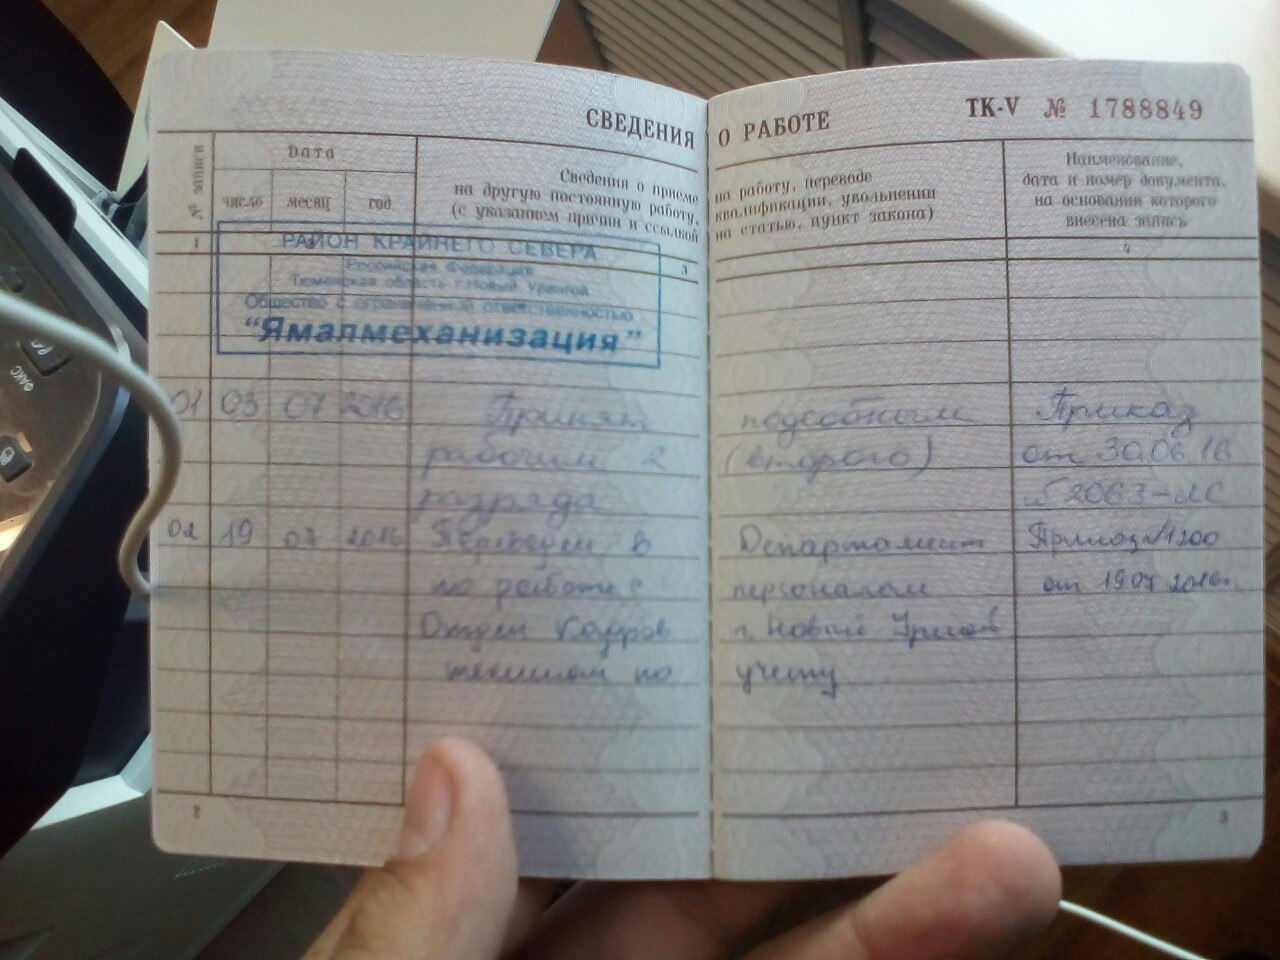 СВЕДЕНИЯ О РАБОТЕ ТК-V № 1788849
№ записи
Дата
число месяц год
Сведения о приеме на работу, переводе
на другую постоянную работу, квалификации, увольнении
(с указанием причин и ссылкой на статью, пункт закона)
Наименование,
дата и номер документа,
на основании которого
внесена запись
1 3 4
РАЙОН КРАЙНЕГО СЕВЕРА
Российская Федерация
Тюменская область г.Новый Уренгой
Общество с ограниченной ответственностью
"Ямалмеханизация"
01 03 07 2016 Принят подсобным Приказ
рабочим 2 (второго) от 30.06.16
разряда № 2063-лс
02 19 07 2016 Переведен в Департамент Приказ №1200
по работе с персоналом от 19.07.2016г.
Отдел кадров г. Новый Уренгой
техником по учету
2 3
ФАКС